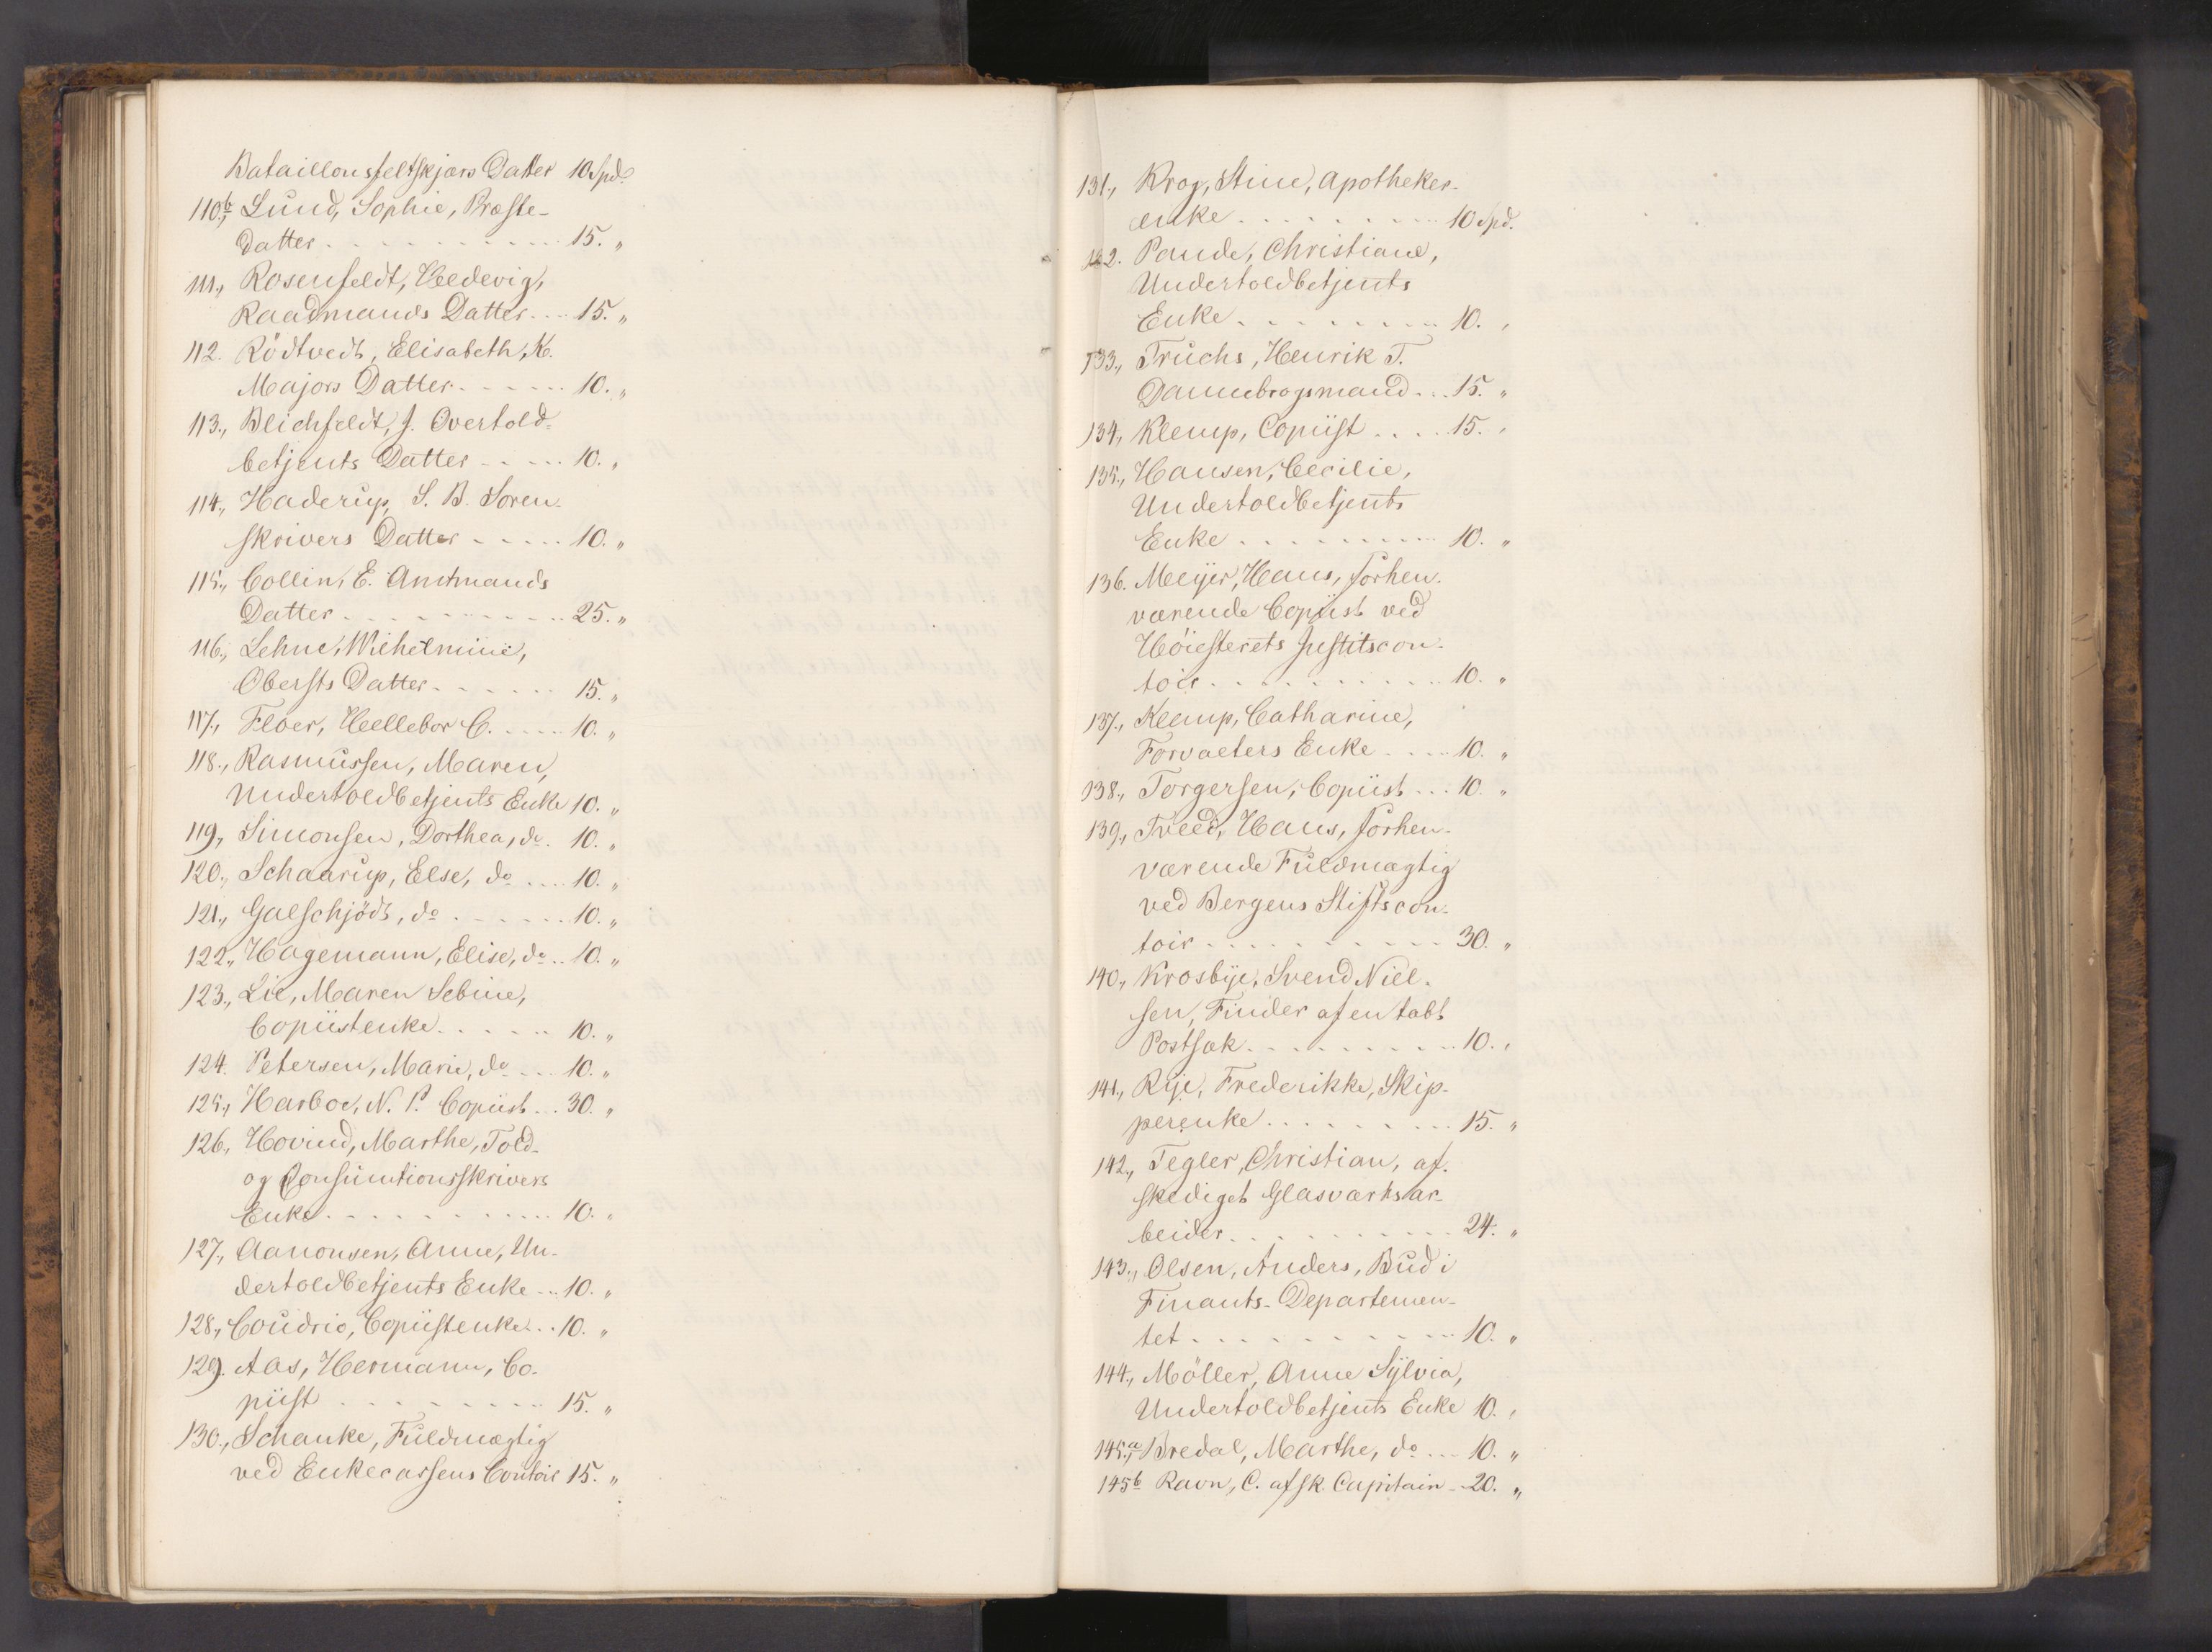 Bataillonsfeltskjærs Datter 10 Spd.
110.b, Lund, Sophie, Præste-
Datter . . . . . . . . . . 15. "
111., Rosenfeldt, Hedevig,
Raadmands Datter . . . 15. "
112. Rödtvedt, Elisabeth, K.
Majors Datter . . . . . 10. "
113., Blichfeldt, J. Overtold-
betjents Datter . . . . . 10. "
114., Haderup, S. B. Soren-
skrivers Datter . . . . . 10. "
115., Collin, E. Amtmands
Datter . . . . . . . . . . 25. "
116., Lehne, Wilhelmine,
Obersts Datter . . . . . . 15. "
117., Floer, Hellebor C. . . . . 10. "
118., Rasmussen, Maren,
Undertoldbetjents Enke 10. "
119., Simonsen, Dorthea, do. 10. "
120., Schaarup, Else, do . . . . 10. "
121., Galschjödt, do . . . . . . 10. "
122., Hagemann, Elise, do . . 10. "
123., Lie, Maren Sebine,
Copiistenke . . . . . . 10. "
124. Petersen, Marie, do . . . 10. "
125., Harboe, N. P. Copiist . . . 30. "
126., Hovind, Marthe, Told-
og Consumtionsskrivers
Enke . . . . . . . . . . . 10. "
127., Aanonsen, Anne, Un-
dertoldbetjents Enke . . . 10. "
128., Coudrio, Copiistenke . . 10. "
129. Aas, Hermann, Co-
piist . . . . . . . . . 15. "
130., Schanke, Fuldmægtig
ved Enkecassens Contoir 15. "
131., Krog, Stine, Apotheker-
enke . . . . . . . . . 10 Spd.
132. Paude, Christiane,
Undertoldbetjents
Enke . . . . . . . . . 10. "
133., Truchs, Henrik T.
Dannebrogsmand . . . 15. "
134., Klemp, Copiist . . . . 15. "
135., Hansen, Cecilie,
Undertoldbetjents
Enke . . . . . . . . . 10. "
136. Meijer, Hans, forhen-
værende Copiist ved
Höiesterets Justitscon-
toir . . . . . . . . . . 10. "
137., Klemp, Catharine,
Forvalters Enke . . . . 10. "
138., Torgersen, Copiist . . . 10. "
139., Tveed, Hans, forhen-
værende Fuldmægtig
ved Bergens Stiftscon-
toir . . . . . . . . . . 30. "
140., Krosbye, Svend Niel-
sen, Finder af en tabt
Postsæk . . . . . . . . . 10. "
141., Rye, Frederikke, Skip-
perenke . . . . . . . . 15. "
142., Tegler, Christian, af-
skediget Glasværksar-
beider . . . . . . . . . . 24. "
143., Olsen, Anders, Bud i
Finants-Departemen-
tet . . . . . . . . . . . 10. "
144., Möller, Anne Sylvia,
Undertoldbetjents Enke 10. "
145.a, Bredal, Marthe, do . . . 10. "
145b Ravn, C. afsk. Capitain - 20. "